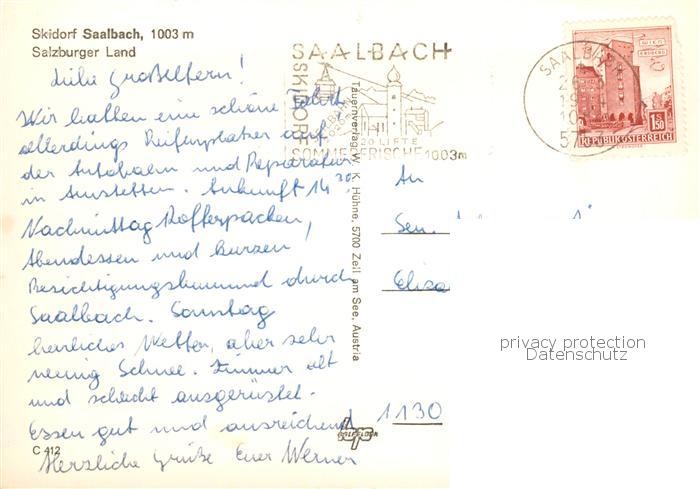 Skidorf Saalbach, 1003 m
Salzburger Land
Liebe Großeltern!
Wir hatten eine schöne Fahrt,
allerdings Reifenplatzer auf
der Autobahn und Reparatur
in Amstetten. Ankunft 14³⁰.
Nachmittag Kofferpacken,
Abendessen und kurzen
Besichtigungsbummel durch
Saalbach. Sonntag
herrliches Wetter, aber sehr
wenig Schnee. Zimmer alt
und schlecht ausgerüstet.
Essen gut und ausreichend
Herzliche Grüße Euer Werner
C 412
Tauernverlag W. K. Hühne, 5700 Zell am See, Austria
SAALBACH
SKIDORF
20 LIFTE
SOMMERFRISCHE 1003m
SAALBACH
5753
WIEN
ERDBERG
1.50
REPUBLIK ÖSTERREICH
An
Elisa
1130
privacy protection
Datenschutz